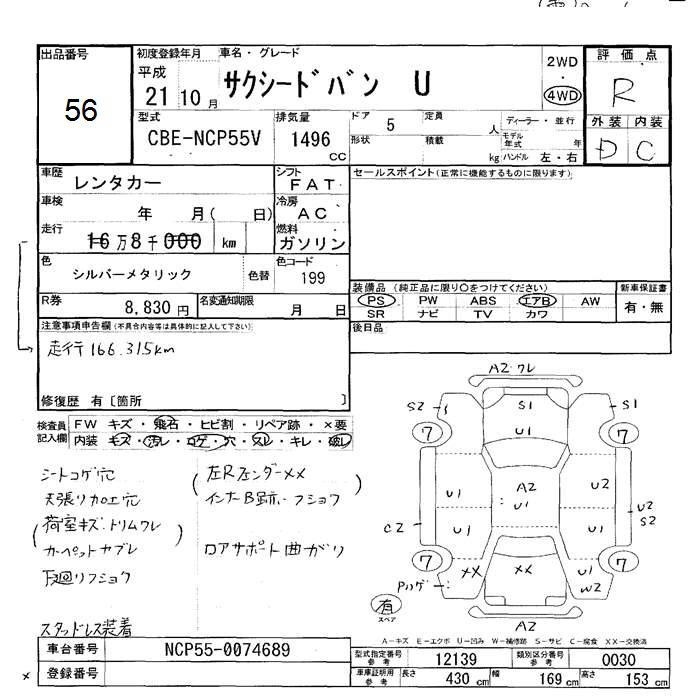 出品番号
56
初度登録年月
平成
21 10 月
車名・グレード
サクシードバン U
2WD
・
4WD
評価点
R
外装 内装
D C
型式
CBE-NCP55V
排気量
1496
CC
ドア
5
定員
人
形状
積載
kg
ディーラー・並行
モデル年式
年
ハンドル 左・右
車歴
レンタカー
シフト
FAT
車検
年 月( 日)
冷房
AC
走行
16万8千000 km
燃料
ガソリン
色
シルバーメタリック
色替
色コード
199
R券
8,830円
名変通知期限
月 日
セールスポイント(正常に機能するものに限ります)
装備品 (純正品に限り○をつけてください)
PS PW ABS エアB AW
SR ナビ TV カワ
新車保証書
有・無
後日品
注意事項申告欄(不具合内容等は具体的に記入して下さい)
走行166.315km
修復歴 有〔箇所 〕
検査員記入欄
FW キズ・飛石・ヒビ割・リペア跡・×要
内装 キズ・汚レ・コゲ・穴・スレ・キレ・破レ
シートコゲ穴
天張リカエ穴
荷室キズ.トリムワレ
カーペットカブレ
下廻リフショク
スタッドレス装着
左Rフェンダー××
インナーB跡.フショウ
コアサポート曲がり
A2 ワレ
S2
S1
S1
7
7
U1
U1
A2
U1
U2
U2
S2
C2
U1
U1
7
7
××
××
U1
W2
Pハゲ
有
スペア
A2
A-キズ E-エクボ U-凹み W-補修跡 S-サビ C-腐食 XX-交換済
車台番号
NCP55-0074689
登録番号
×
型式指定番号
参考
12139
類別区分番号
参考
0030
車庫証明用
参考
長さ
430 cm
幅
169 cm
高さ
153 cm